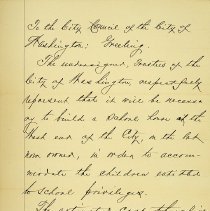 To the City Council of the City of
Washington; Greeting.
The undersigned, Trustees of the
City of Washington, respectfully
represent that it will be necessa
ry to build a School house at the
West end of the City, on the lot
now owned, in order to accom-
modate the children entitled
to School privileges.